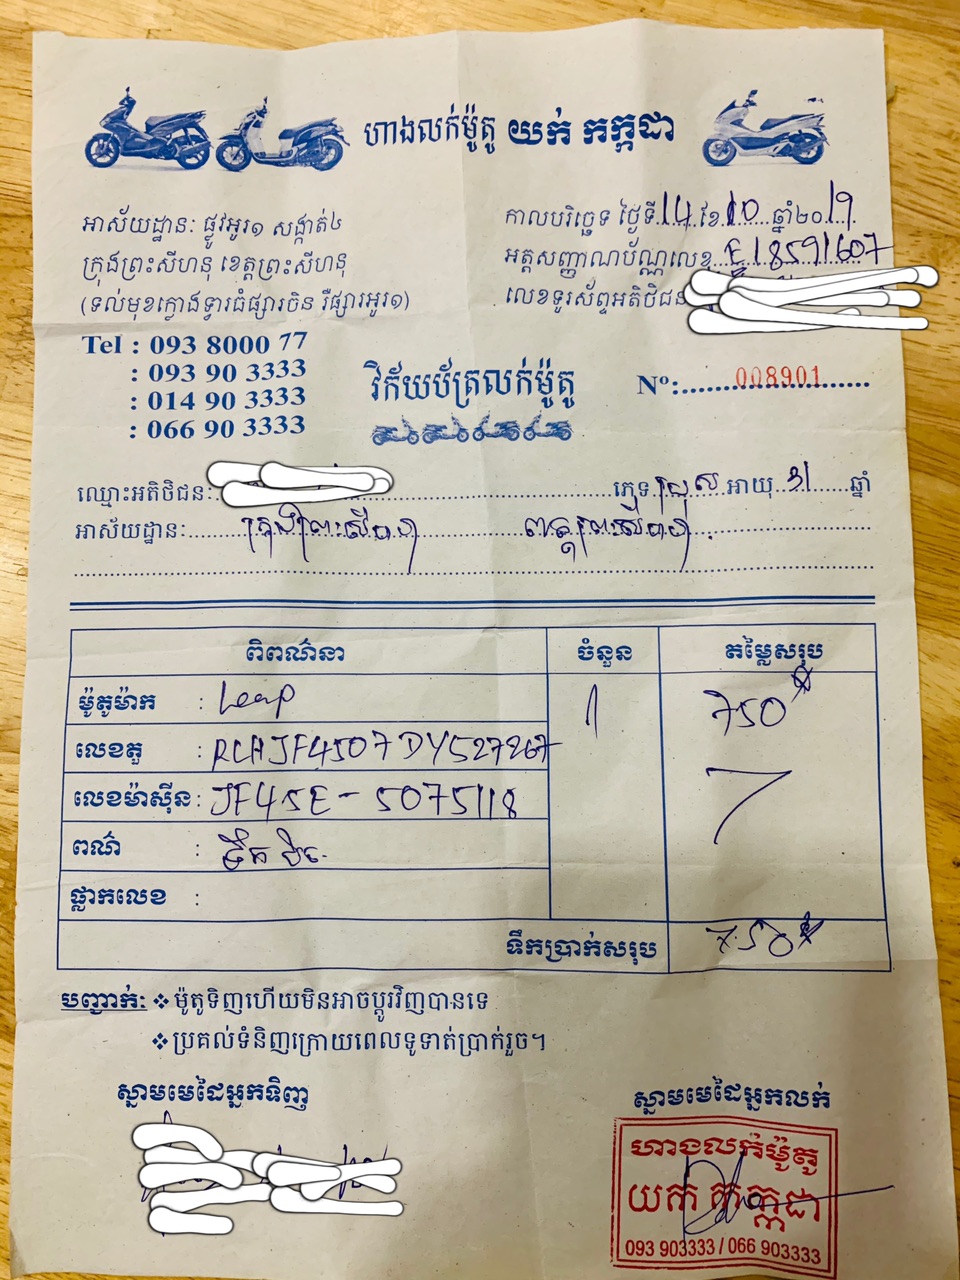 ហាងលក់ម៉ូតូ យក់ កក្កដា
អាស័យដ្ឋានៈ ផ្លូវអូរ១ សង្កាត់៤
ក្រុងព្រះសីហនុ ខេត្តព្រះសីហនុ
(ទល់មុខក្លោងទ្វារធំផ្សារចិន រឺផ្សារអូរ១)
កាលបរិច្ឆេទ ថ្ងៃទី 14 ខែ 10 ឆ្នាំ២០ 19
អត្តសញ្ញាណប័ណ្ណលេខ E18591607
លេខទូរស័ព្ទអតិថិជន
Tel : 093 8000 77
: 093 90 3333
: 014 90 3333
: 066 90 3333
វិក័យប័ត្រលក់ម៉ូតូ
Nº: 008901
ឈ្មោះអតិថិជនៈ ភេទ ប្រុស អាយុ 31 ឆ្នាំ
អាស័យដ្ឋានៈ ក្រុងព្រះសីហនុ ខេត្តព្រះសីហនុ
ពិពណ៌នា ចំនួន តម្លៃសរុប
ម៉ូតូម៉ាក : Leap 1 750$
លេខតួ : RLHJF4507DY527267
លេខម៉ាស៊ីន : JF45E-5075118
ពណ៌ : ទឹក
ផ្លាកលេខ :
ទឹកប្រាក់សរុប 750$
បញ្ជាក់ៈ ❖ ម៉ូតូទិញហើយមិនអាចប្តូរវិញបានទេ
❖ ប្រគល់ទំនិញក្រោយពេលទូទាត់ប្រាក់រួច។
ស្នាមមេដៃអ្នកទិញ
ស្នាមមេដៃអ្នកលក់
ហាងលក់ម៉ូតូ
យក់ កក្កដា
093 903333 / 066 903333